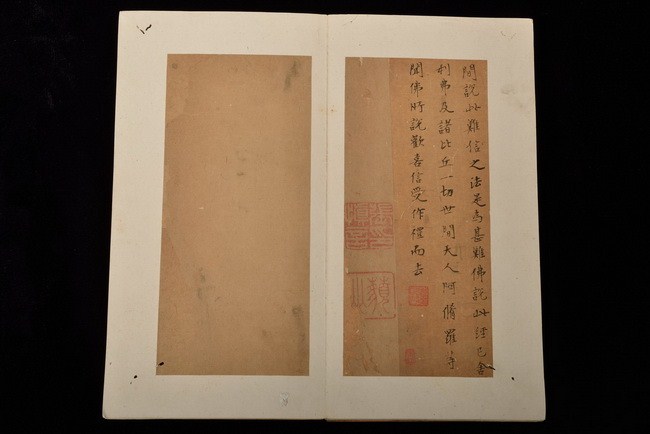 間説此難信之法是為甚難佛説此經已舍
利弗及諸比丘一切世間天人阿脩羅等
聞佛所説歡喜信受作禮而去